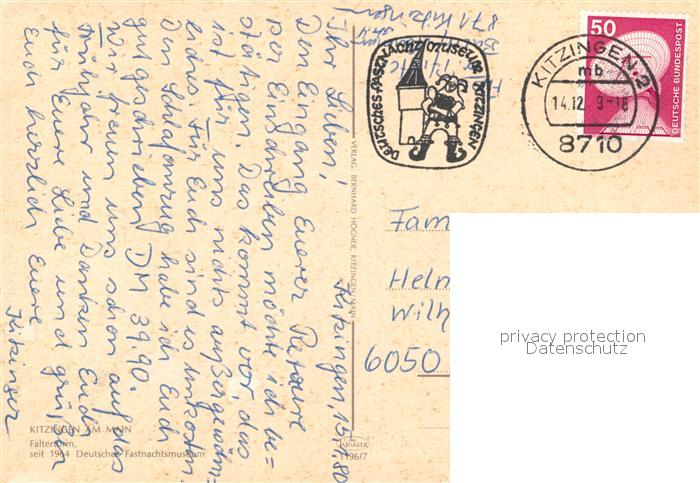 Kitzingen, 15.1.80
Ihr Lieben!
Den Eingang Euerer Retoure
per Einschreiben möchte ich be=
stätigen. Das kommt vor, das
ist für uns nichts außergewöhn=
liches. Für Euch sind es Unkosten.
Den Schlafanzug habe ich Euch
gutgeschrieben DM 39.90.
Wir freuen uns schon auf das
Frühjahr und Danken Euch
für Eure Liebe und grüßen
Euch herzlich Euere
Kitzinger
871 Kitzingen
DEUTSCHES FASTNACHTMUSEUM KITZINGEN
KITZINGEN 2
mb
14.12. 9-18
8710
50
DEUTSCHE BUNDESPOST
VERLAG: BERNHARD HÖGNER, KITZINGEN/MAIN
Fam
Helm
Wilh
6050
privacy protection
Datenschutz
KITZINGEN AM MAIN
Falterturm,
seit 1964 Deutsches Fastnachtsmuseum
KRÜGER
1196/7